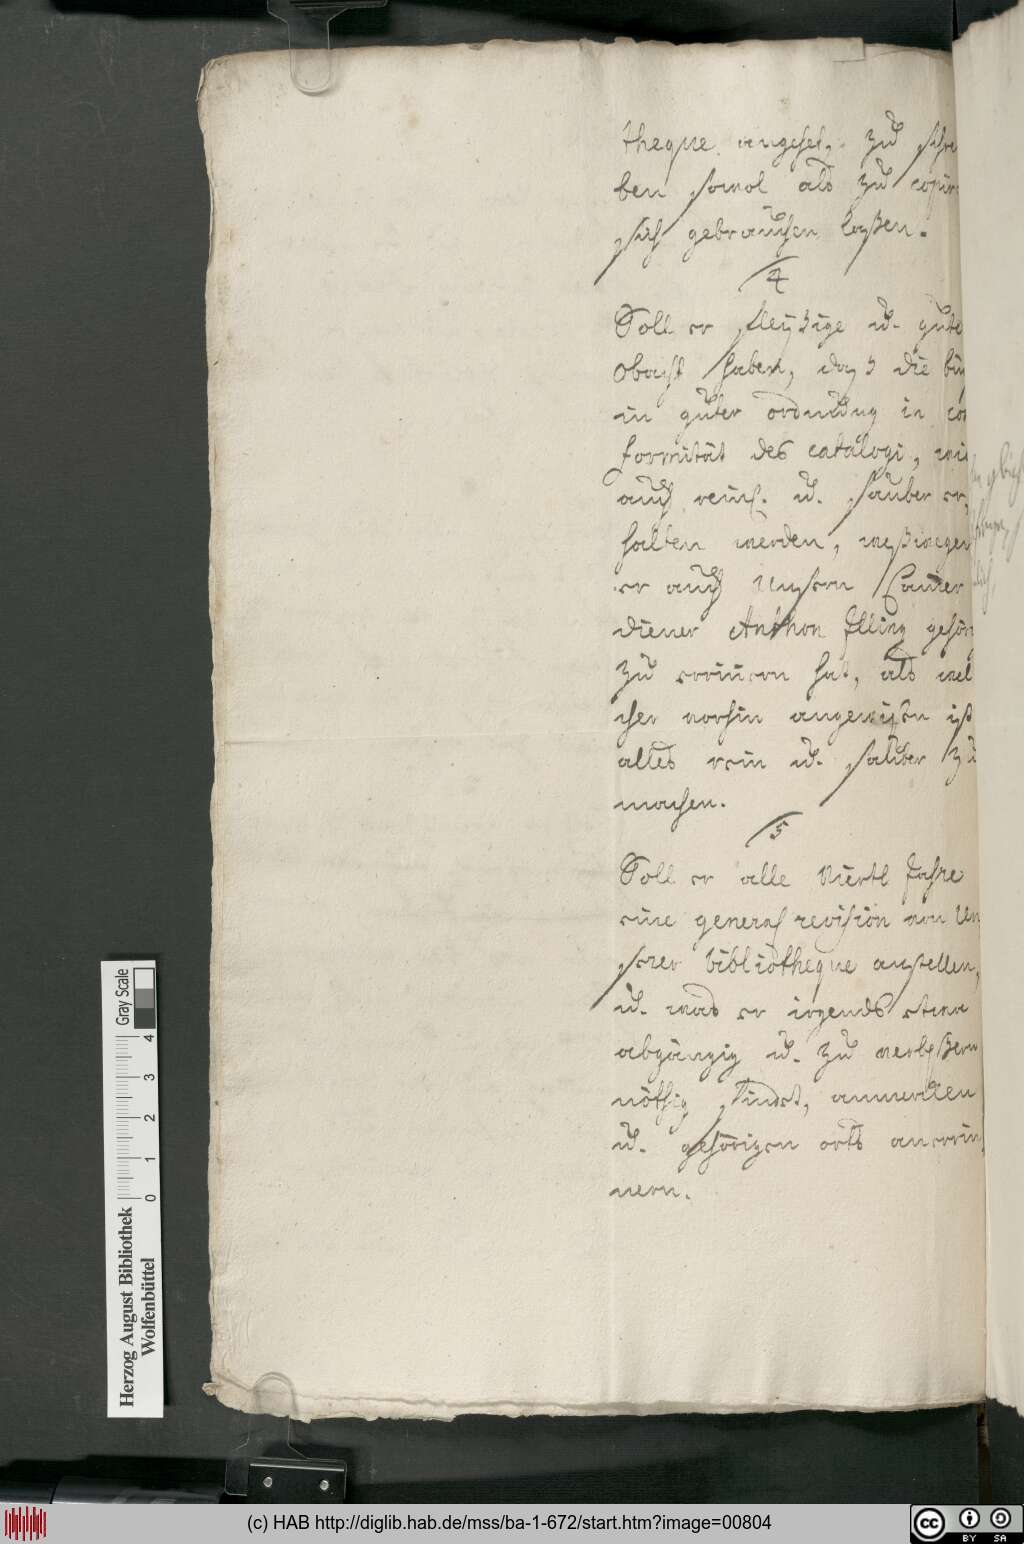 theque angehet, zu schrei
ben sowol als zu copiren
sich gebrauchen laßen.
4
Soll er fleyßige u. gute
obacht haben, daß die büc
in guter ordnung in con
formität des catalogi, wie
auch reinl. u. sauber er,
halten werden, weßwegen
er auch Unsern Camer
diener Anthon Illing gehörig
zu erinnern hat, als wel
cher vorhin angewisen ist
alles rein u. sauber zu
machen.
5
Soll er alle Viertl Jahre
eine general revision von Un
serer bibliotheque anstellen,
u. was er irgends etwa
abgängig u. zu verbeßern
nöthig findet, anmercken
u. gehörigen orts anerrin,
nern.
Gray Scale
0 1 2 3 4
Herzog August Bibliothek
Wolfenbüttel
(c) HAB http://diglib.hab.de/mss/ba-1-672/start.htm?image=00804
cc BY SA